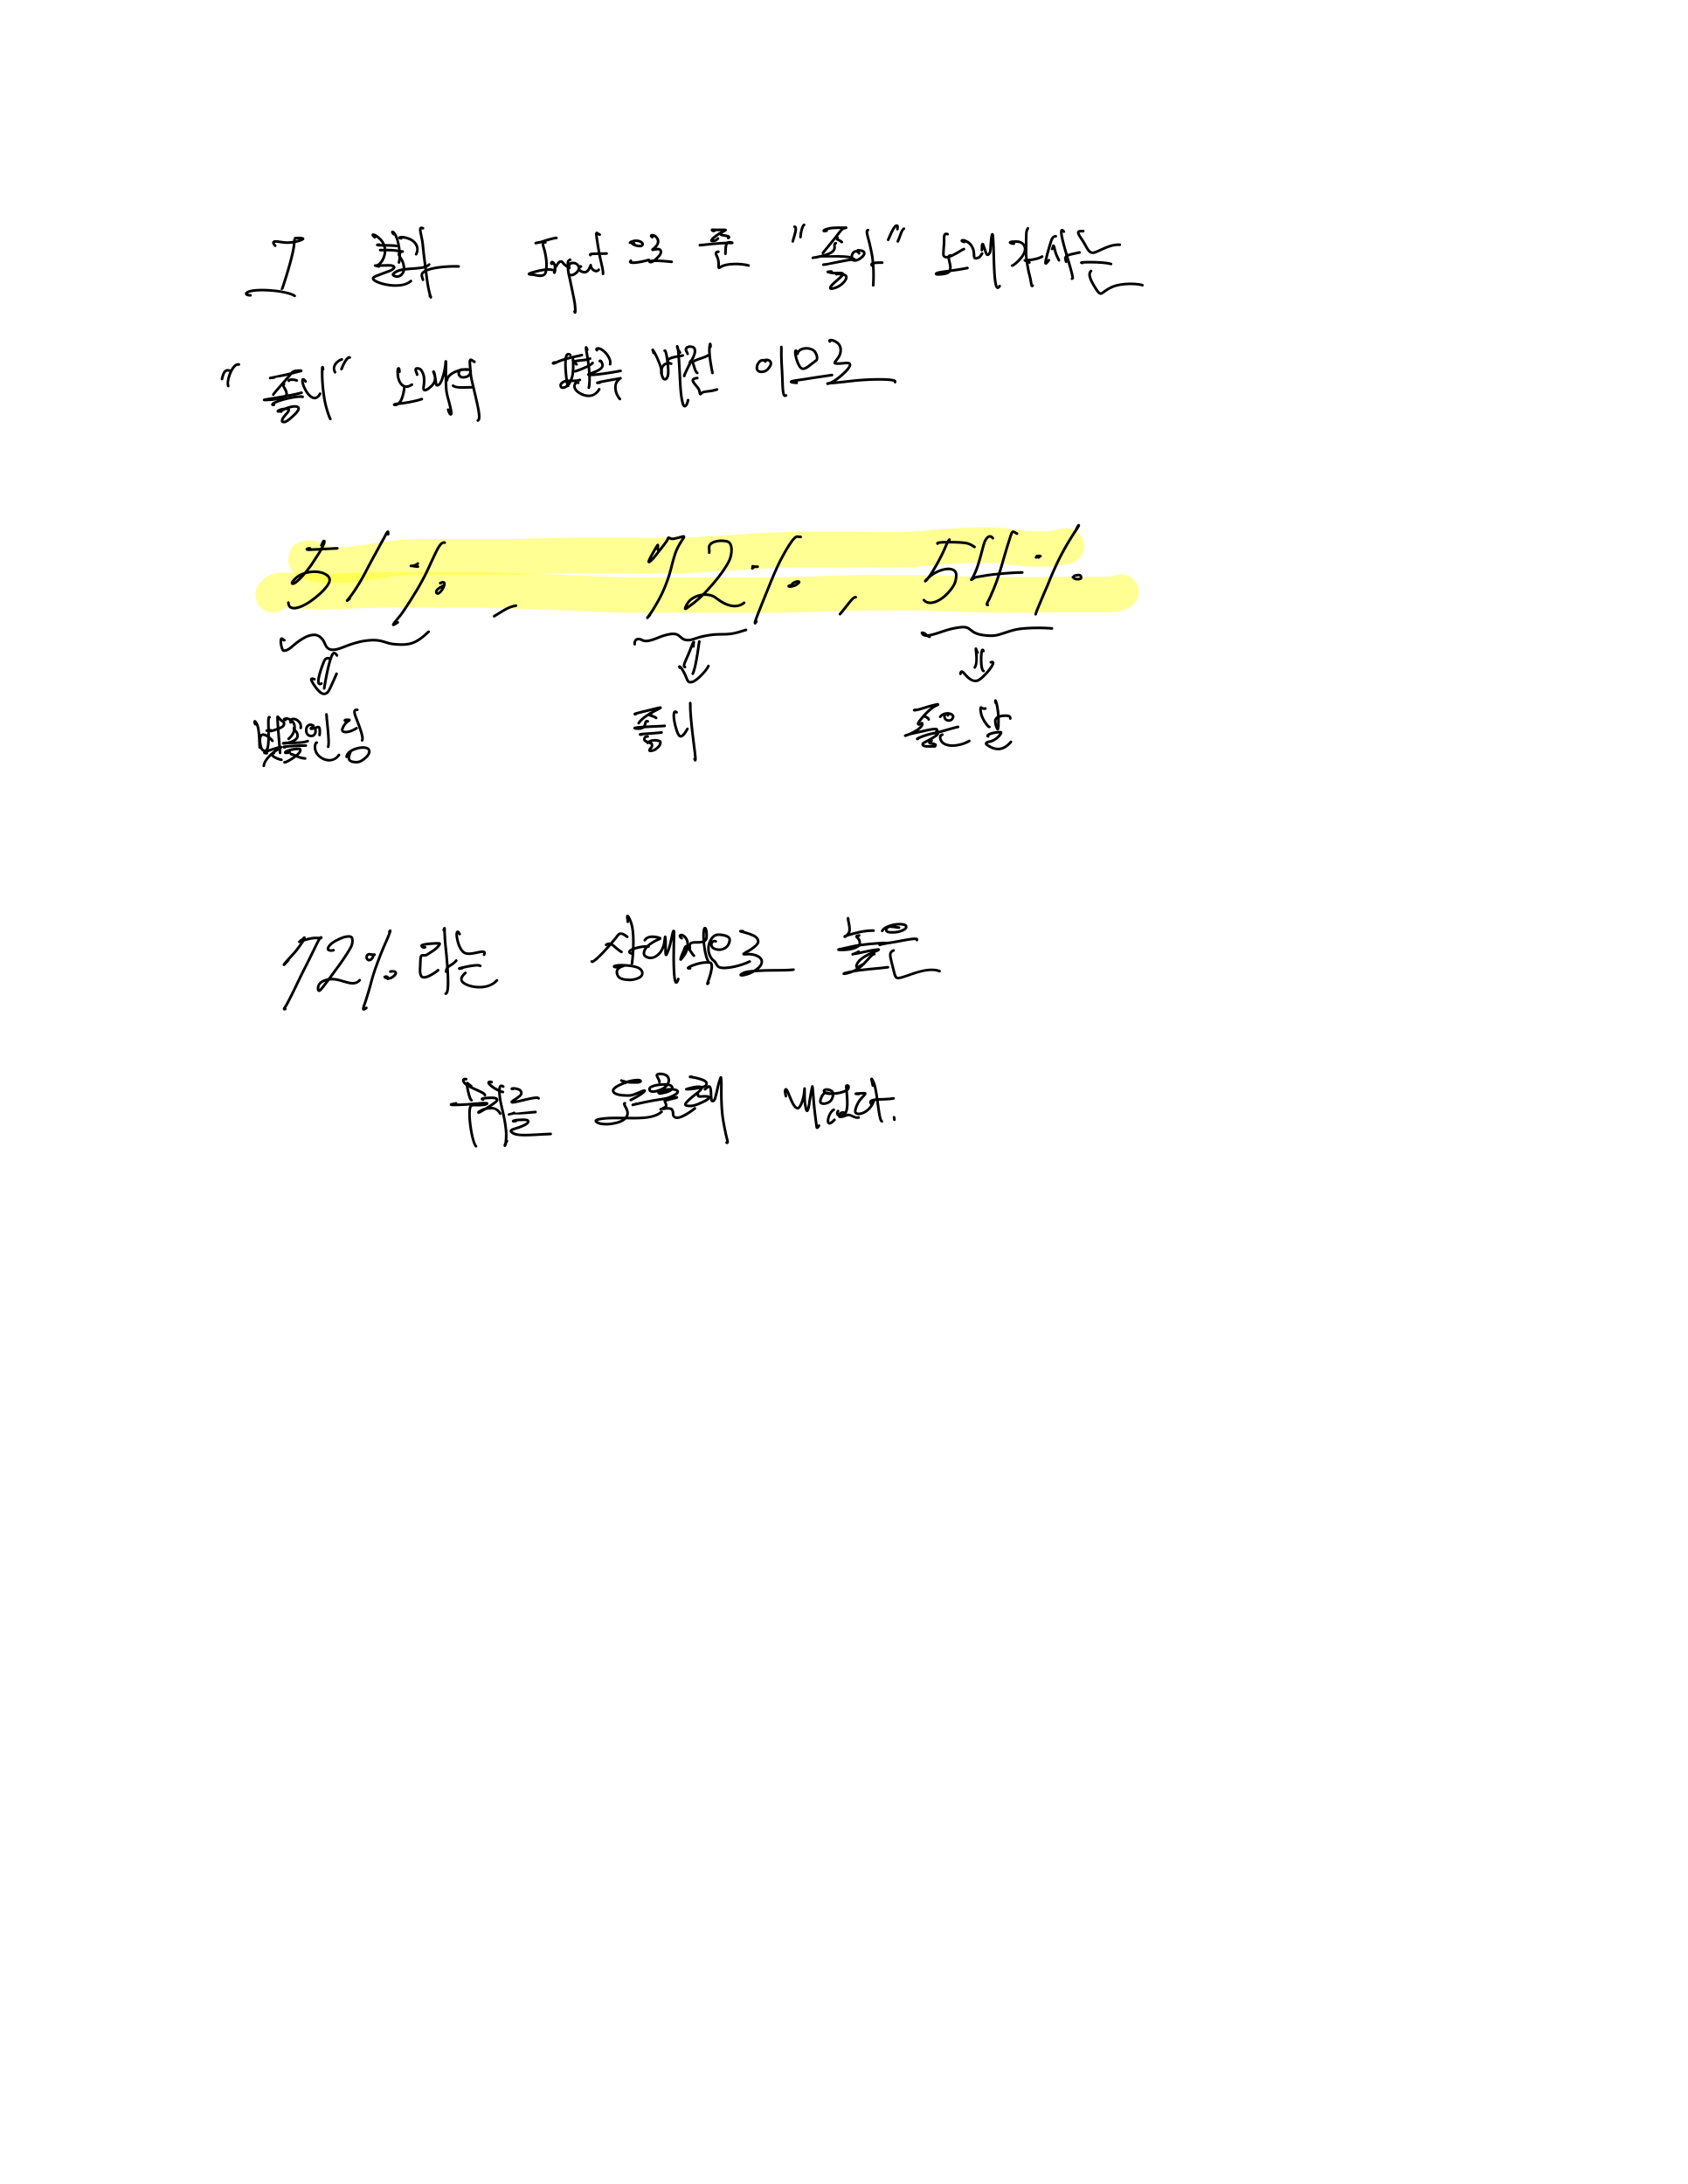 I 결과 으로 준 "좋아" 노래가사는
"좋니" 노래의 변곡 버전 이므로
51%, 72%, 54%
벚꽃인상 좋니 좋은 날
72%라는 상대적으로 높은
수치를 도출해 내었다.